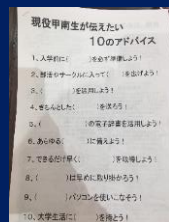 現役甲南生が伝えたい
10のアドバイス
1、入学前に(　　　)を必ず準備しよう!
2、部活やサークルに入って(　　　)を広げよう!
3、(　　　)を活用しよう!
4、きちんとした(　　　)を送ろう!
5、(　　　)の電子辞書を活用しよう!
6、あらゆる(　　　)に備えよう!
7、できるだけ早く(　　　)を取得しよう!
8、(　　　)は早めに取り掛かろう!
9、(　　　)パソコンを使いこなそう!
10、大学生活に(　　　)を持とう!